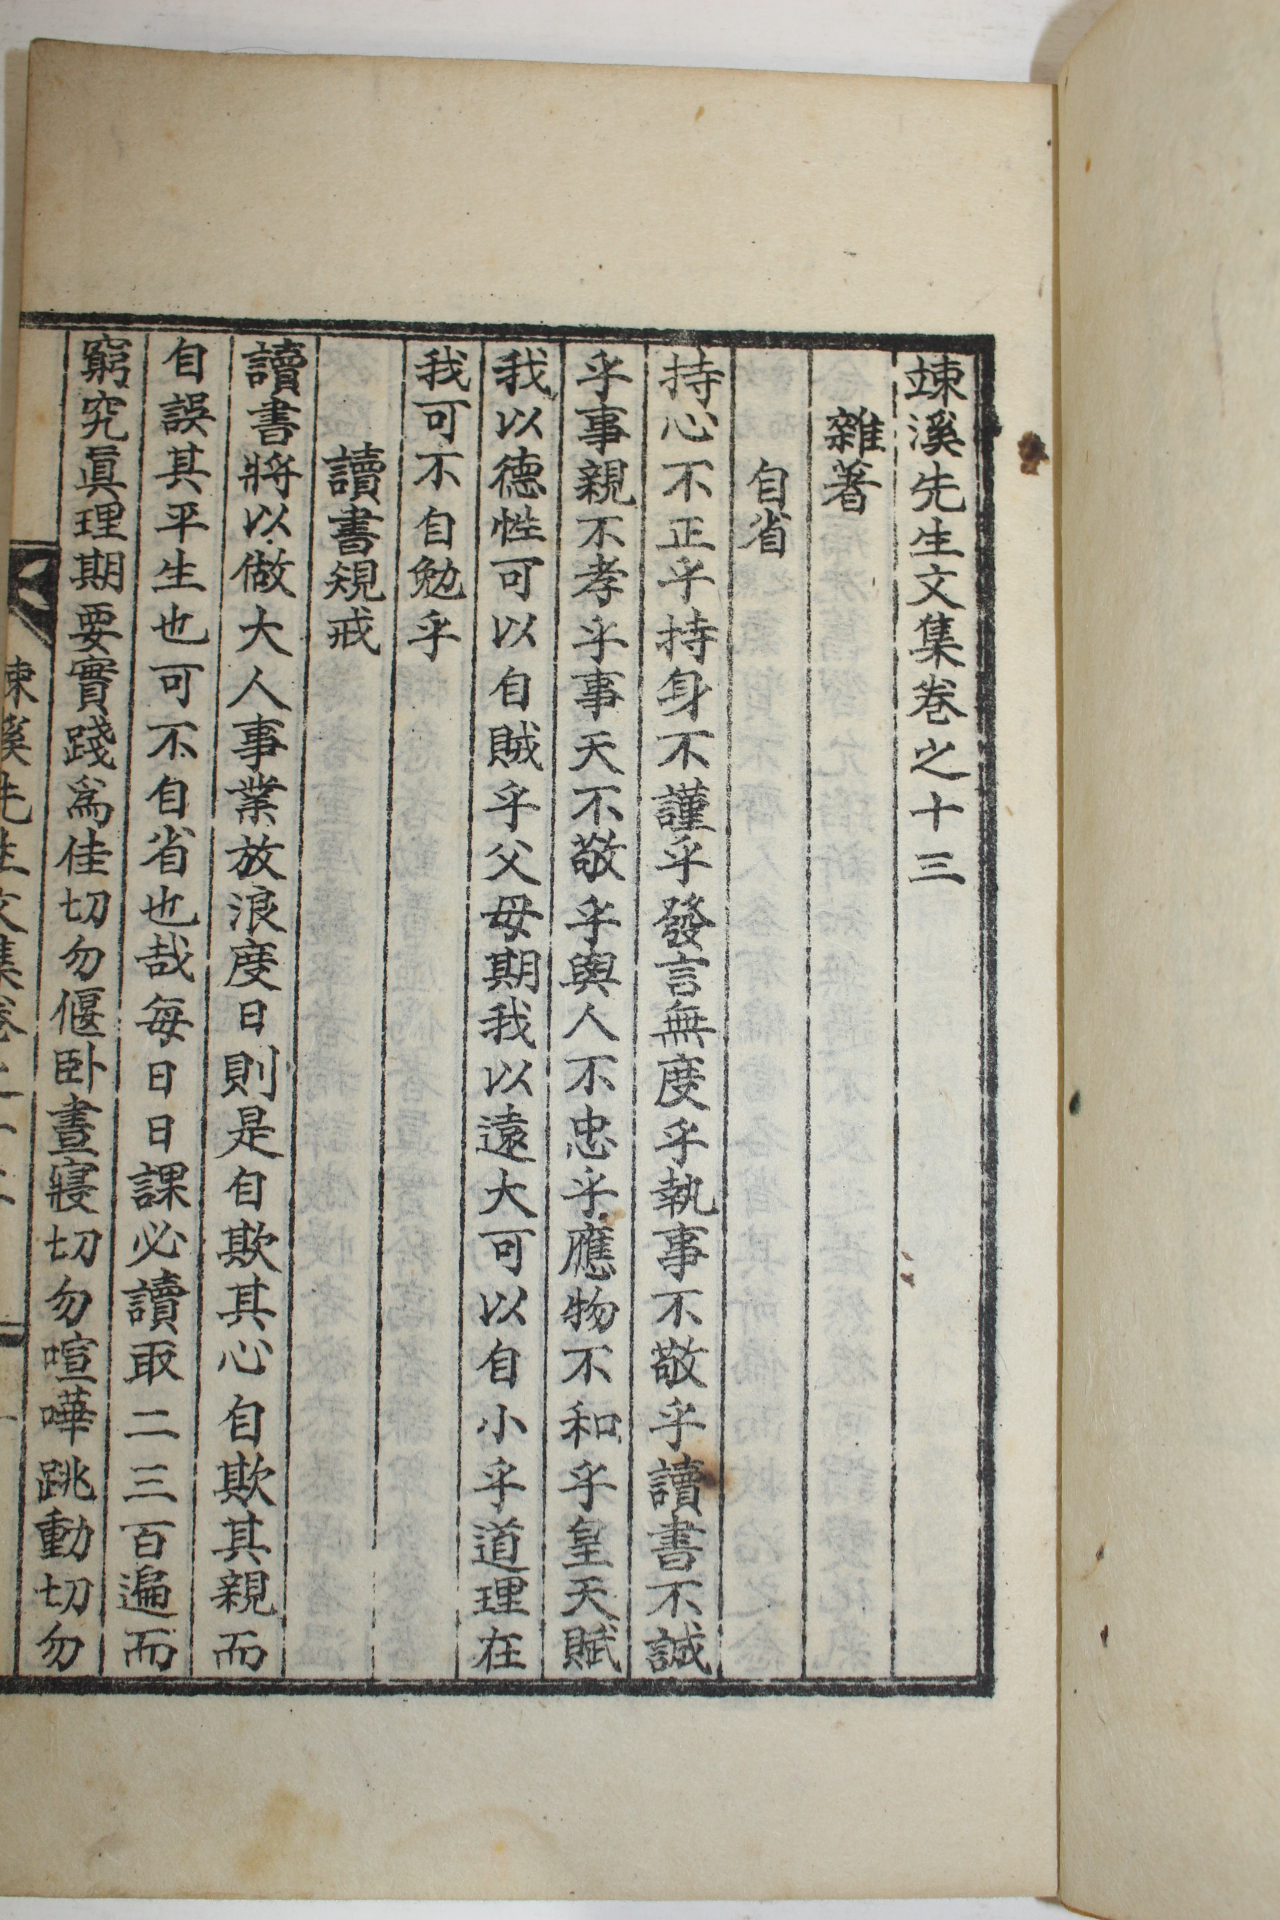 竦溪先生文集卷之十三
雜著
自省
持心不正乎持身不謹乎發言無度乎執事不敬乎讀書不誠
乎事親不孝乎事天不敬乎與人不忠乎應物不和乎皇天賦
我以德性可以自賊乎父母期我以遠大可以自小乎道理在
我可不自勉乎
讀書規戒
讀書將以做大人事業放浪度日則是自欺其心自欺其親而
自誤其平生也可不自省也哉每日日課必讀取二三百遍而
窮究眞理期要實踐爲佳切勿偃卧晝寢切勿喧嘩跳動切勿
竦溪先生文集卷之十三